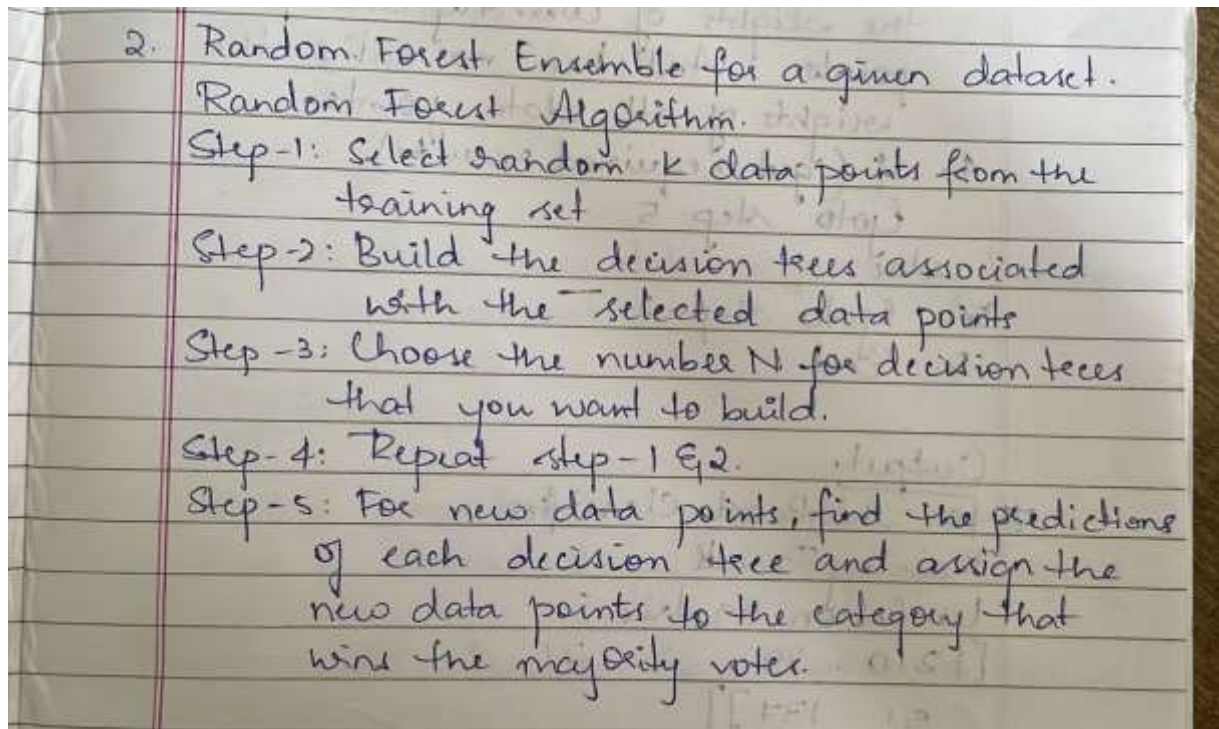 2. Random Forest Ensemble for a given dataset.
Random Forest Algorithm.
Step-1: Select random K data points from the
training set
Step-2: Build the decision trees associated
with the selected data points
Step-3: Choose the number N for decision trees
that you want to build.
Step-4: Repeat step-1 & 2.
Step-5: For new data points, find the predictions
of each decision tree and assign the
new data points to the category that
wins the majority votes.